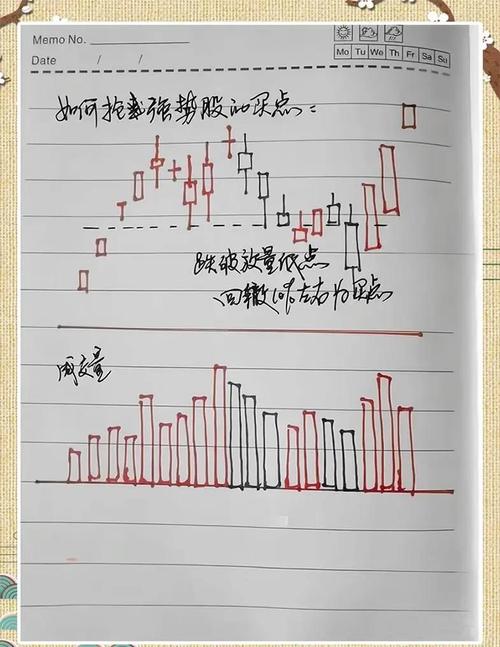 Memo No.
Date / /
Mo Tu We Th Fr Sa Su
如何抢到强势股的买点：
跌破放量低点
回撤10%左右为买点
成交量